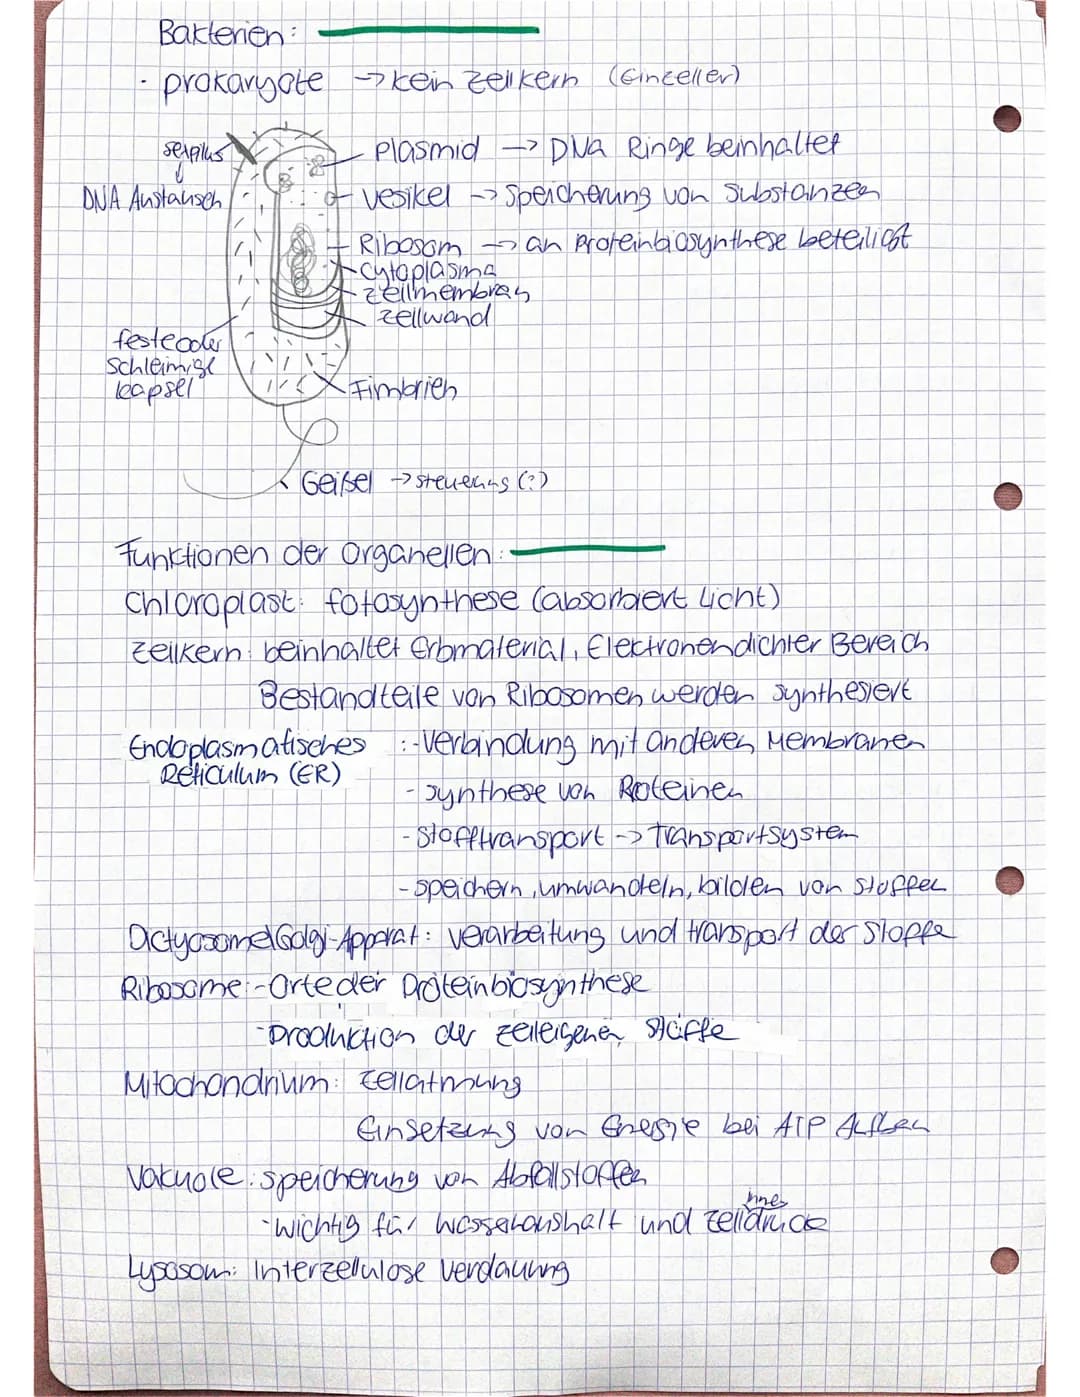 Bakterien:
· prokaryote → kein Zellkern (Einzeller)
sexpilus
DNA Austausch
Plasmid → DNA Ringe beinhaltet
Vesikel → Speicherung von Substanzen
Ribosom → an Proteinbiosynthese beteiligt
Cytoplasma
Zellmembran
Zellwand
feste oder
schleimige
kapsel
Fimbrien
Geißel → steuerung (?)
Funktionen der Organellen:
Chloroplast: fotosynthese (absorbiert Licht)
Zellkern: beinhaltet Erbmaterial, Elektronendichter Bereich
Bestandteile von Ribosomen werden synthesiert
Endoplasmatisches : - Verbindung mit anderen Membranen
Reticulum (ER)
- synthese von Proteinen
- Stofftransport → Transportsystem
- speichern, umwandeln, bilden von stoffen
Dictyosome/Golgi-Apparat: verarbeitung und transport der Stoffe
Ribosome: - Orte der Proteinbiosynthese
- Produktion der zelleigenen Stoffe
Mitochondrium: Zellatmung
Einsetzung von Energie bei ATP Aufbau
Vakuole: speicherung von Abfallstoffen
- wichtig für wasserhaushalt und Zelldruck
Lysosom: Interzellulose Verdauung